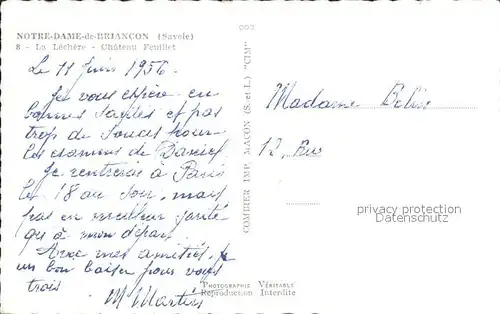 NOTRE-DAME-de-BRIANÇON (Savoie)
8 - La Léchère - Château Feuillet
Le 11 Juin 1956.
Je vous espère en
bonnes santés et pas
trop de soucis pour
les examens de Daniel
Je rentrerai à Paris
le 18 au soir, mais
pas en meilleur santé
qu'à mon départ.
Avec mes amitiés, je
un bon baiser pour vous
trois
M Martin
COMBIER IMP. MACON (S.-et-L.) "CIM"
Madame
12,
privacy protection
Datenschutz
Photographie Véritable
Reproduction Interdite